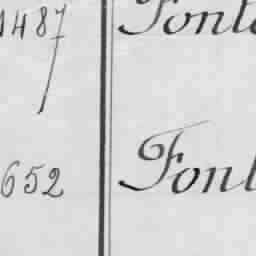 1487 Font
652 Font